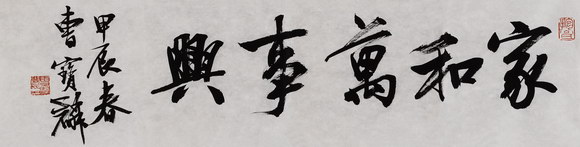 家和萬事興
甲辰春
曹寶麟